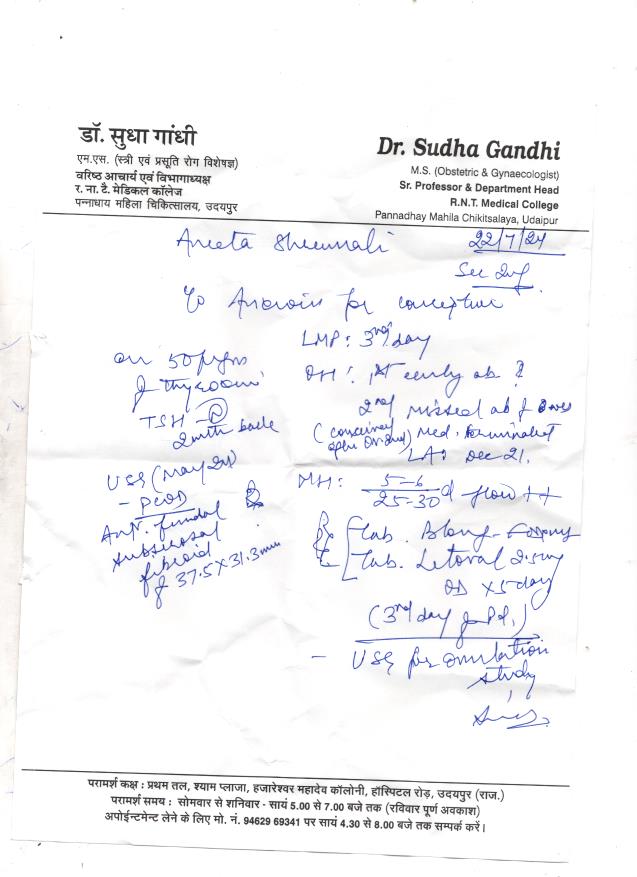 डॉ. सुधा गांधी
एम.एस. (स्त्री एवं प्रसूति रोग विशेषज्ञ)
वरिष्ठ आचार्य एवं विभागाध्यक्ष
र. ना. टै. मेडिकल कॉलेज
पन्नाधाय महिला चिकित्सालय, उदयपुर
Dr. Sudha Gandhi
M.S. (Obstetric & Gynaecologist)
Sr. Professor & Department Head
R.N.T. Medical College
Pannadhay Mahila Chikitsalaya, Udaipur
22/7/24
for
LMP: 3rd day
on 50
OH: 1st early ab
TSH
2nd missed ab of
2 mth back
LA: Dec 21.
USG (May 24)
- PCOD
MH: 5-6
25-30 d flow ++
Ant. fundal
subserosal
fibroid
of 37.5 x 31.3 mm
Tab.
Tab. Letoval 2.5 mg
OD x 5 day
(3rd day of Pd.)
- USG for ovulation
study
परामर्श कक्ष : प्रथम तल, श्याम प्लाजा, हजारेश्वर महादेव कॉलोनी, हॉस्पिटल रोड़, उदयपुर (राज.)
परामर्श समय : सोमवार से शनिवार - सायं 5.00 से 7.00 बजे तक (रविवार पूर्ण अवकाश)
अपोईन्टमेन्ट लेने के लिए मो. नं. 94629 69341 पर सायं 4.30 से 8.00 बजे तक सम्पर्क करें।